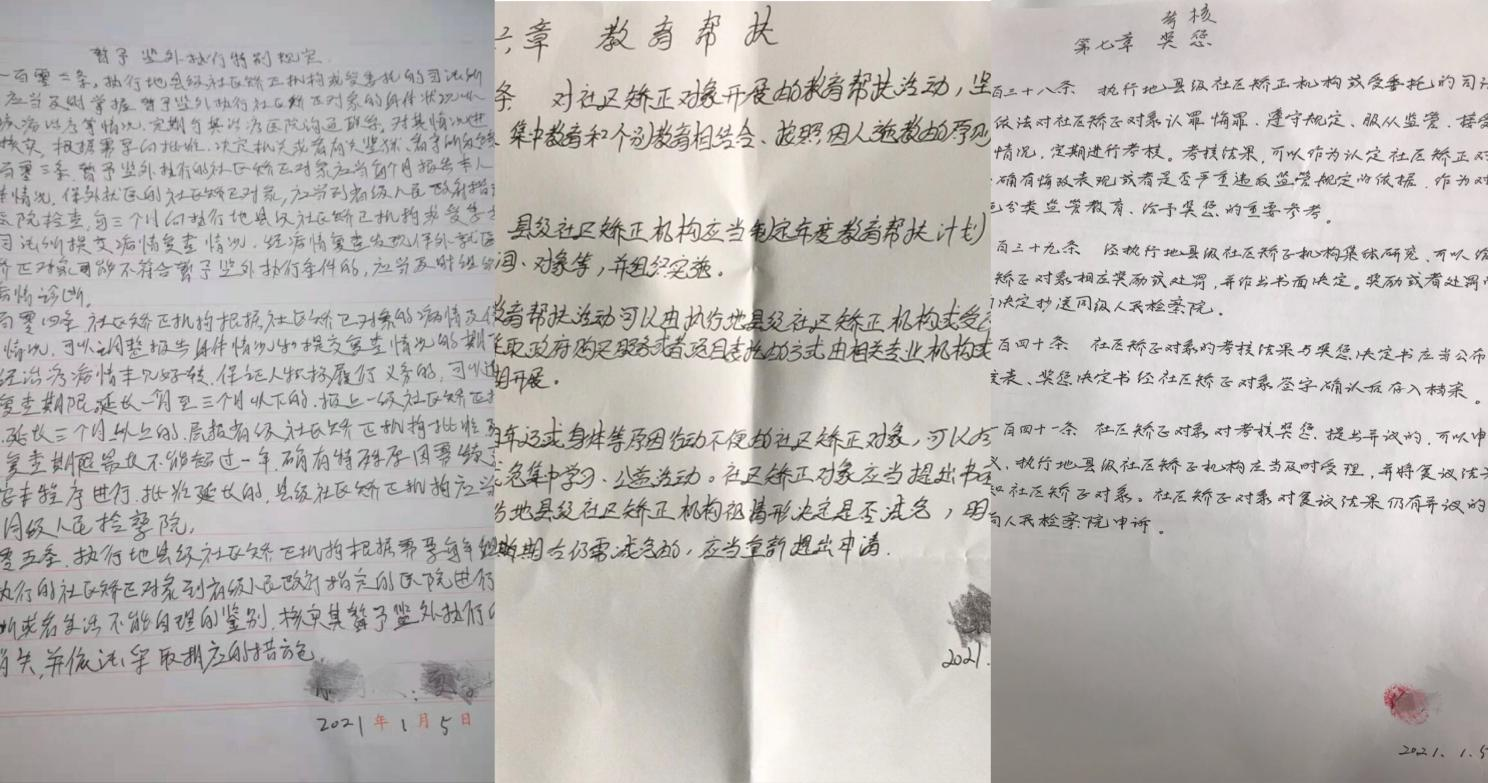 暂予监外执行特别规定
一百零二条,执行地县级社区矫正机构或受委托的司法所
应当及时掌握暂予监外执行社区矫正对象的身体状况以
疾病治疗等情况,定期与其治疗医院沟通联系,对其情况进
核实,根据需要向批准、决定机关或者有关监狱、看守所反馈
百零三条 暂予监外执行的社区矫正对象应当每个月报告本人
体情况。保外就医的社区矫正对象,应当到省级人民政府指
医院检查,每三个月向执行地县级社区矫正机构或受委
司法所提交病情复查情况。经病情复查发现保外就医
矫正对象可能不符合暂予监外执行条件的,应当及时组织
病情诊断。
百零四条 社区矫正机构根据社区矫正对象的病情及保
情况,可以调整报告身体情况和提交复查情况的期
经治疗病情未见好转,保证人积极履行义务的,可以
复查期限延长一月至三个月以下的,报上一级社区矫正
延长三个月以上的,层报省级社区矫正机构批准
复查期限最长不能超过一年,确有特殊原因需
本程序进行。批准延长的,县级社区矫正机构应当
同级人民检察院。
零五条 执行地县级社区矫正机构根据需要每年组
执行的社区矫正对象到省级人民政府指定的医院进行
断或者生活不能自理的鉴别,核实其暂予监外执行
消失,并依法采取相应的措施
2021年1月5日
六章 教育帮扶
条 对社区矫正对象开展的教育帮扶活动,坚
集中教育和个别教育相结合、按照因人施教的原则
县级社区矫正机构应当制定年度教育帮扶计划
间、对象等,并组织实施。
教育帮扶活动可以由执行地县级社区矫正机构或受
采取政府购买服务或者项目委托的方式由相关专业机构或
期开展。
因年迈或身体等原因行动不便的社区矫正对象,可以
减免集中学习、公益活动。社区矫正对象应当提出书
当地县级社区矫正机构视情形决定是否减免,明
期期满后仍需减免的,应当重新提出申请.
2021.
第七章 考核奖惩
百三十八条 执行地县级社区矫正机构或受委托的司
依法对社区矫正对象认罪悔罪、遵守规定、服从监管、接受
情况,定期进行考核。考核结果,可以作为认定社区矫正对
确有悔改表现或者是否严重违反监管规定的依据,作为对
分类监管教育、给予奖惩的重要参考。
百三十九条 经执行地县级社区矫正机构集体研究,可以给
矫正对象相应奖励或处罚,并作出书面决定。奖励或者处罚
决定抄送同级人民检察院。
百四十条 社区矫正对象的考核结果与奖惩决定书应当公布
表、奖惩决定书经社区矫正对象签字确认后存入档案。
一百四十一条 社区矫正对象对考核奖惩提出异议的,可以申
议,执行地县级社区矫正机构应当及时受理,并将复议结
知社区矫正对象。社区矫正对象对复议结果仍有异议的
向人民检察院申诉。
2021.1.5